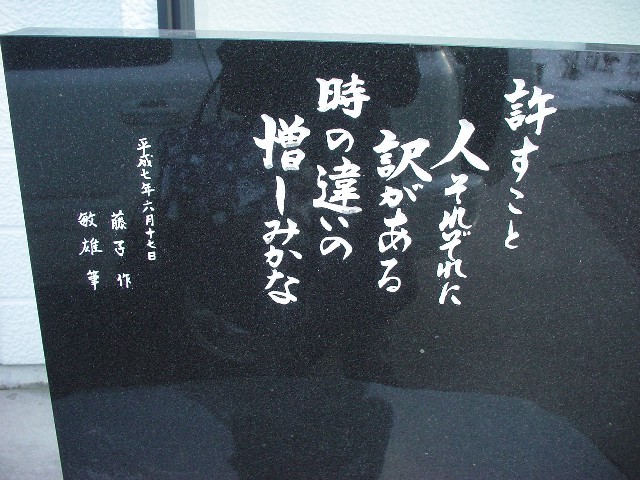 許すこと
人それぞれに
訳がある
時の違いの
憎しみかな
平成七年六月十七日
藤子 作
敏雄 筆